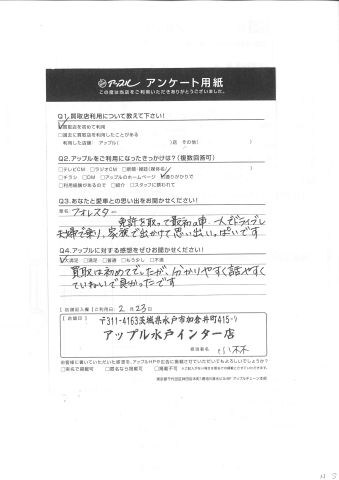 アップル アンケート用紙
この度は当店をご利用いただきありがとうございました。
Q1.買取店利用について教えて下さい!
☑買取店を初めて利用
□過去に買取店を利用したことがある
利用した店舗( アップル( )店 その他( )
Q2.アップルをご利用になったきっかけは?(複数回答可)
□テレビCM □ラジオCM □新聞・雑誌(媒体名/ )
□チラシ □DM □アップルのホームページ ☑通りがかりで
□利用経験があるので □紹介 □スタッフに誘われて
Q3.あなたと愛車との思い出をお聞かせください!
車名 フォレスター
免許を取って最初の車 一人でドライブし
夫婦で乗り、家族で出かけて思い出いっぱいです
Q4.アップルに対する感想をぜひお聞かせください!
☑大満足 □満足 □普通 □もう少し □不満
買取は初めてでしたが、分かりやすく話しやすく
ていねいで良かったです
【店舗記入欄】ご利用日: 2月23日
【店舗印】
〒311-4163茨城県水戸市加倉井町415-1
アップル水戸インター店
担当者名 小林
お客様に書いていただいた感想を、アップルHPや広告に掲載させていただいてもよろしいでしょうか?
□実名で掲載可 □匿名なら掲載可 □掲載不可
N S